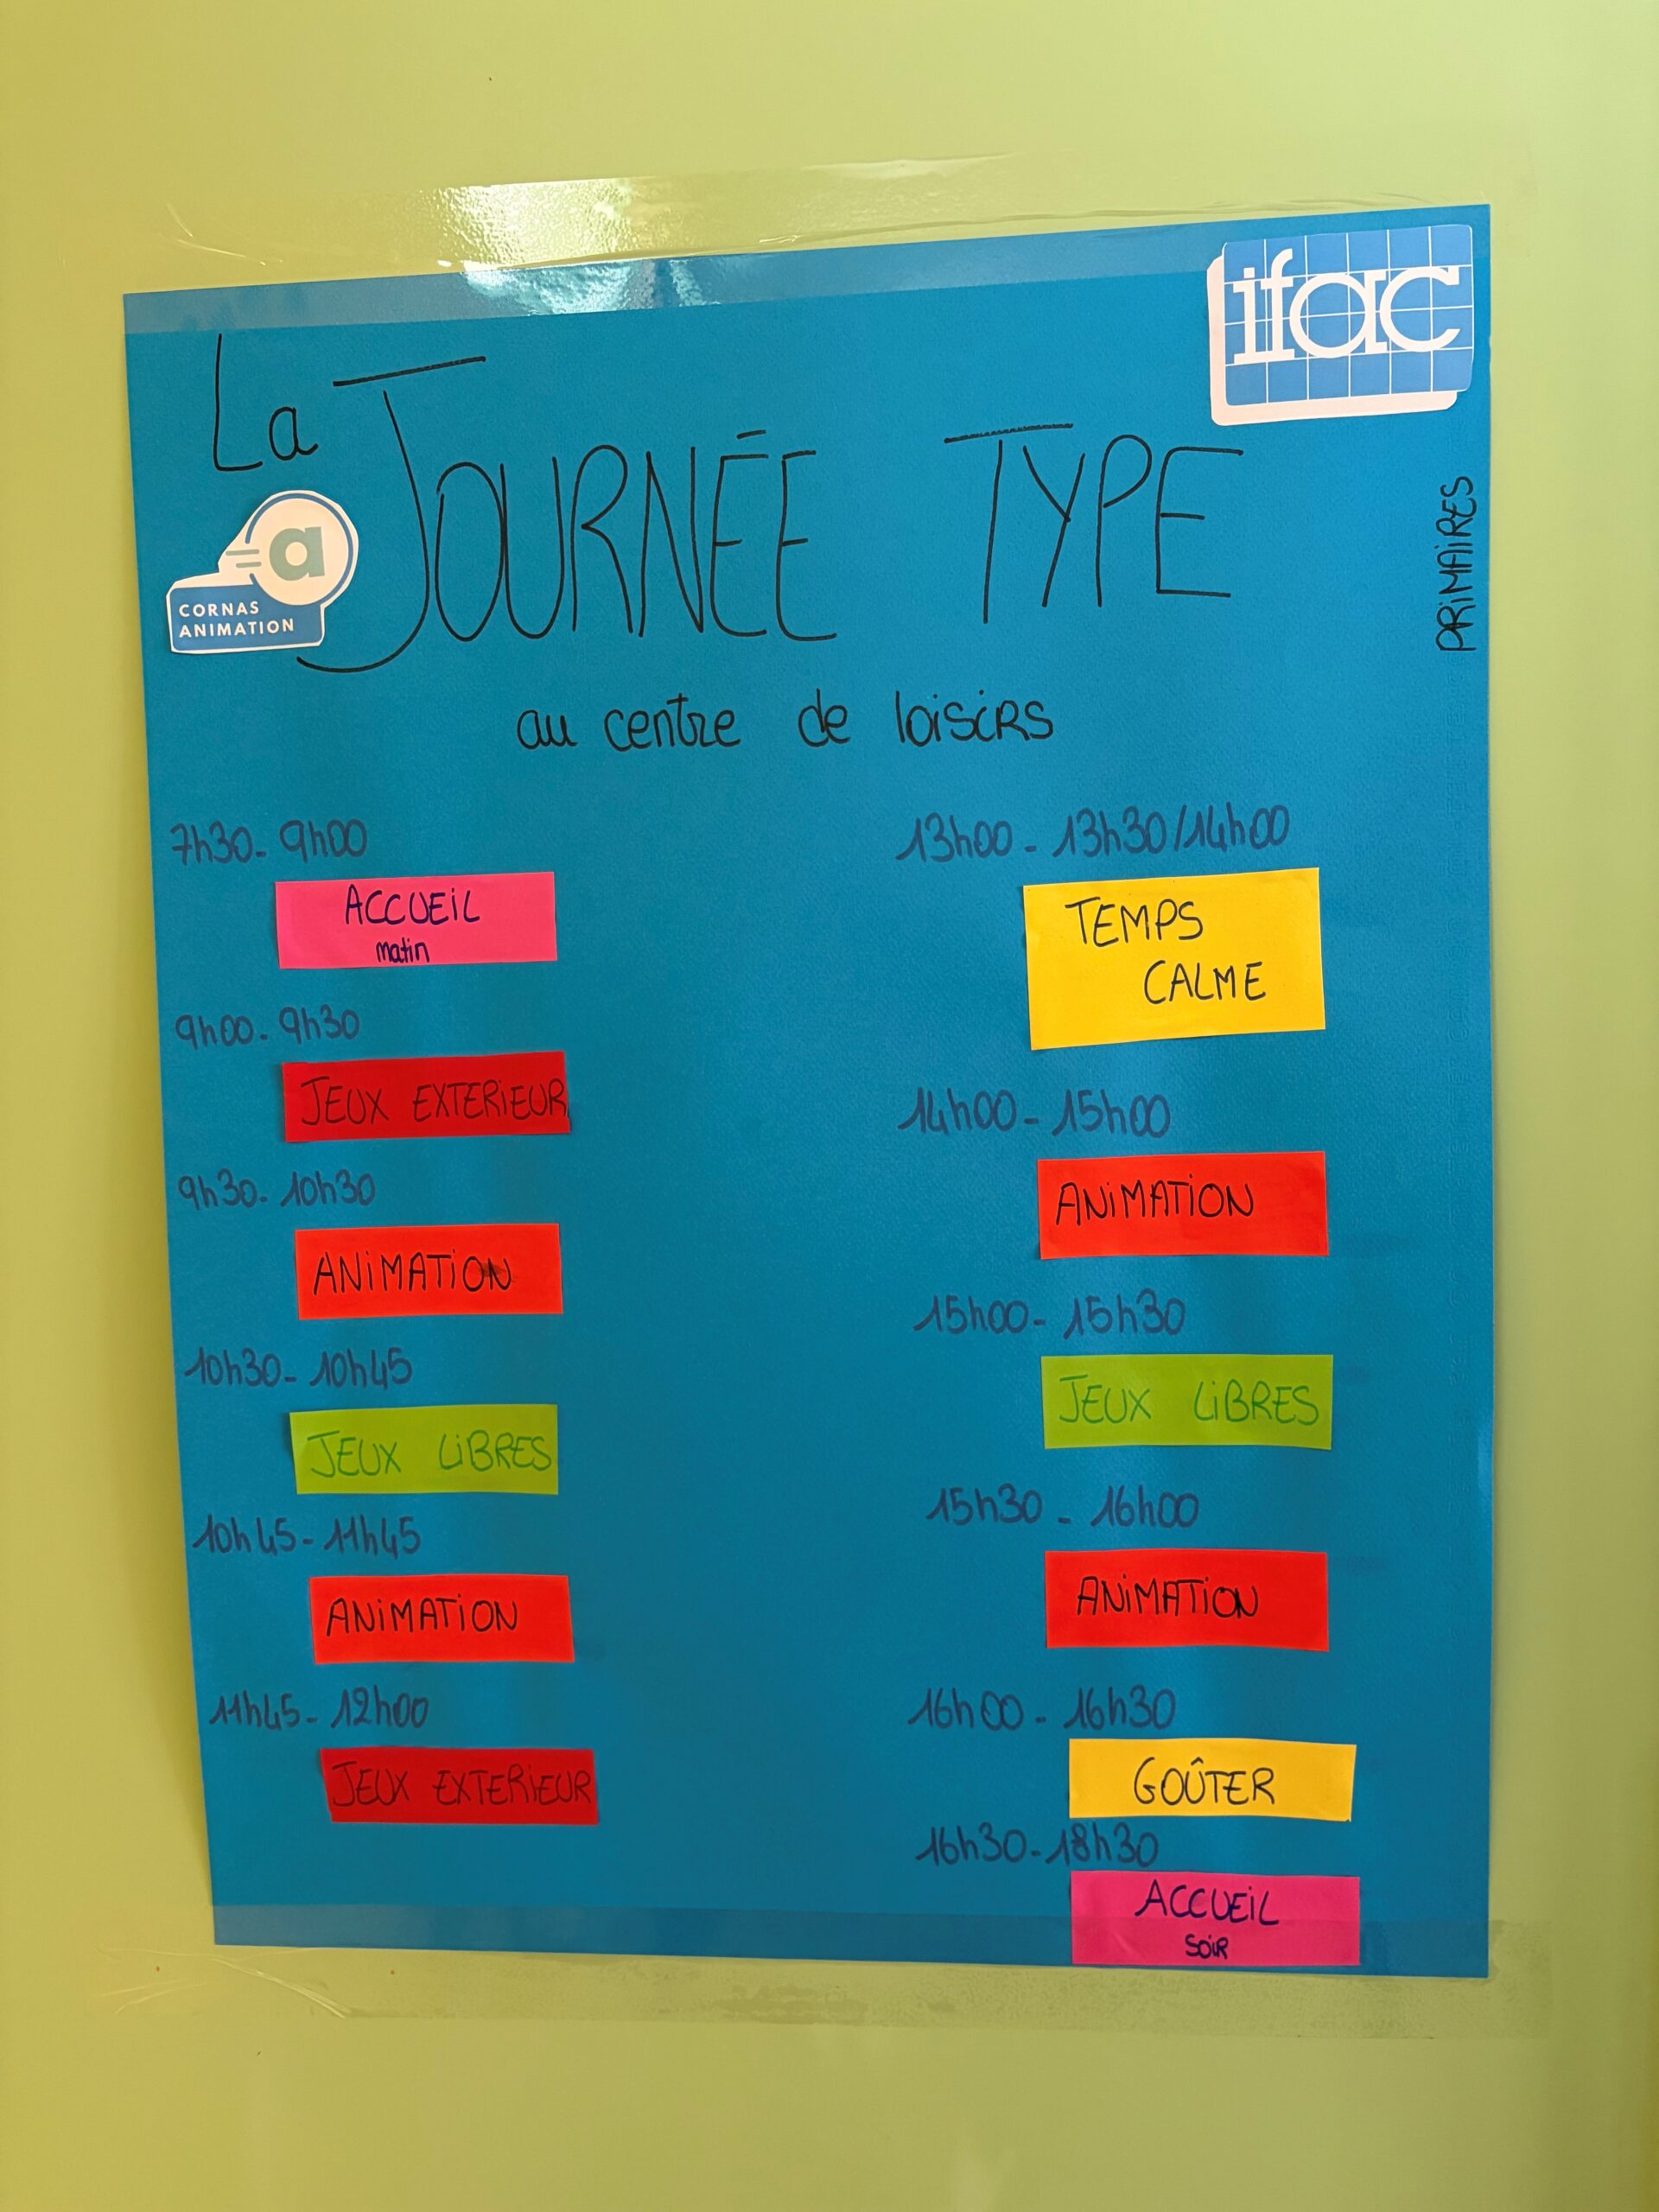 ifac
La
JOURNÉE TYPE
PRiMAiRES
CORNAS
ANIMATION
au centre de loisirs
7h30 - 9h00
ACCUEiL
matin
9h00 - 9h30
JEUX EXTERiEUR
9h30 - 10h30
ANiMATiON
10h30 - 10h45
JEUX LiBRES
10h45 - 11h45
ANiMATiON
11h45 - 12h00
JEUX EXTERiEUR
13h00 - 13h30/14h00
TEMPS
CALME
14h00 - 15h00
ANiMATiON
15h00 - 15h30
JEUX LiBRES
15h30 - 16h00
ANiMATiON
16h00 - 16h30
GOÛTER
16h30 - 18h30
ACCUEiL
SOiR